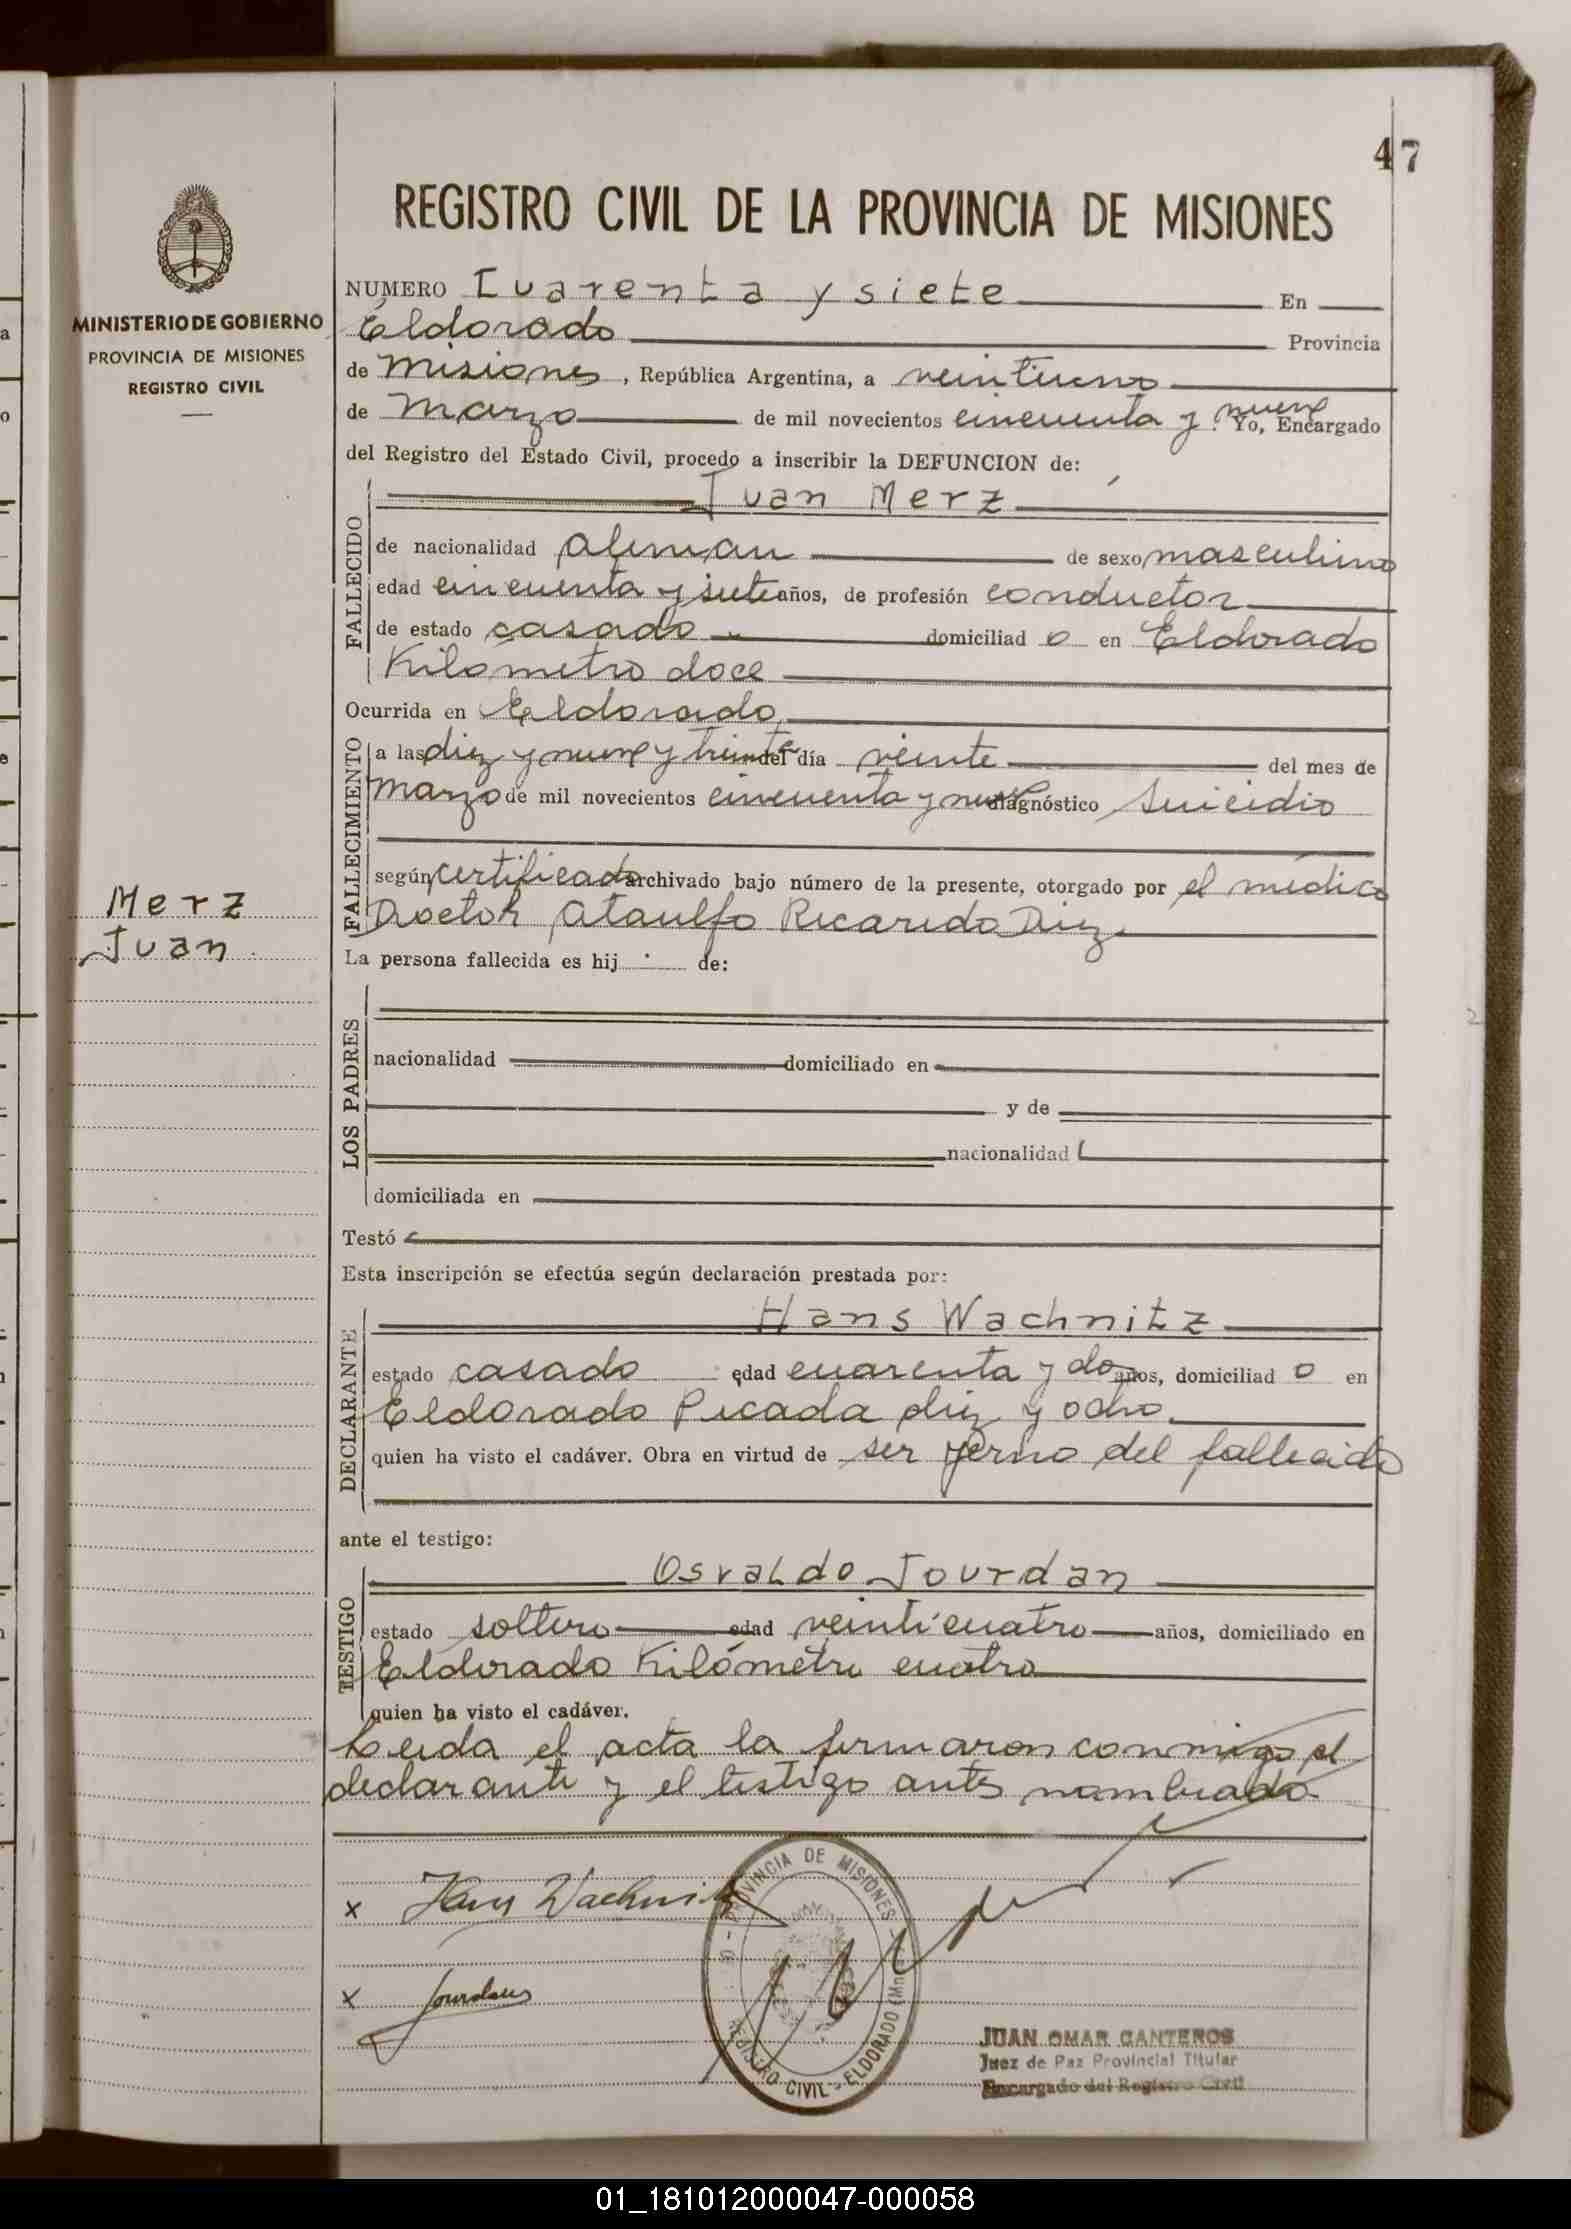 47
REGISTRO CIVIL DE LA PROVINCIA DE MISIONES
MINISTERIO DE GOBIERNO
PROVINCIA DE MISIONES
REGISTRO CIVIL
NUMERO Cuarenta y siete En
Eldorado Provincia
de Misiones, República Argentina, a veintiuno
de Marzo de mil novecientos cincuenta y nueve. Yo, Encargado
del Registro del Estado Civil, procedo a inscribir la DEFUNCION de:
Juan Merz
FALLECIDO
de nacionalidad Aleman de sexo masculino
edad cincuenta y siete años, de profesión conductor
de estado casado domiciliad o en Eldorado
Kilómetro doce
Ocurrida en Eldorado
FALLECIMIENTO
a las diez y nueve y treinta del día veinte del mes de
Marzo de mil novecientos cincuenta y nueve diagnóstico Suicidio
según certificado archivado bajo número de la presente, otorgado por el médico
Doctor Ataulfo Ricardo Diez
Merz
Juan
La persona fallecida es hij de:
LOS PADRES
nacionalidad domiciliado en
y de
nacionalidad
domiciliada en
Testó
Esta inscripción se efectúa según declaración prestada por:
Hans Wachnitz
DECLARANTE
estado casado edad cuarenta y dos años, domiciliad o en
Eldorado Picada diez y ocho
quien ha visto el cadáver. Obra en virtud de ser yerno del fallecido
ante el testigo:
Osvaldo Jourdan
TESTIGO
estado soltero edad veinticuatro años, domiciliado en
Eldorado Kilómetro cuatro
quien ha visto el cadáver.
Leida el acta la firmaron conmigo el
declarante y el testigo antes nombrado
x Hans Wachnitz
x Jourdan
PROVINCIA DE MISIONES
REGISTRO CIVIL - ELDORADO (Mnes
JUAN OMAR CANTEROS
Juez de Paz Provincial Titular
Encargado del Registro Civil
01_181012000047-000058